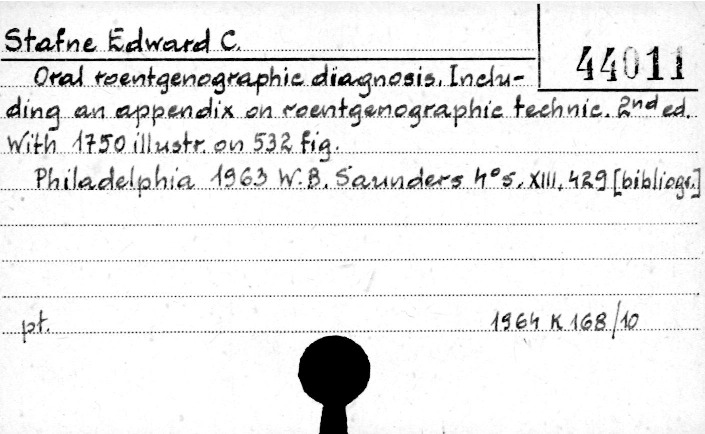 Stafne Edward C.
44011
Oral roentgenographic diagnosis. Inclu-
ding an appendix on roentgenographic technic. 2nd ed.
With 1750 illustr. on 532 fig.
Philadelphia 1963 W.B. Saunders 4° s. XIII, 429 [bibliogr.]
pt.
1964 K 168/10